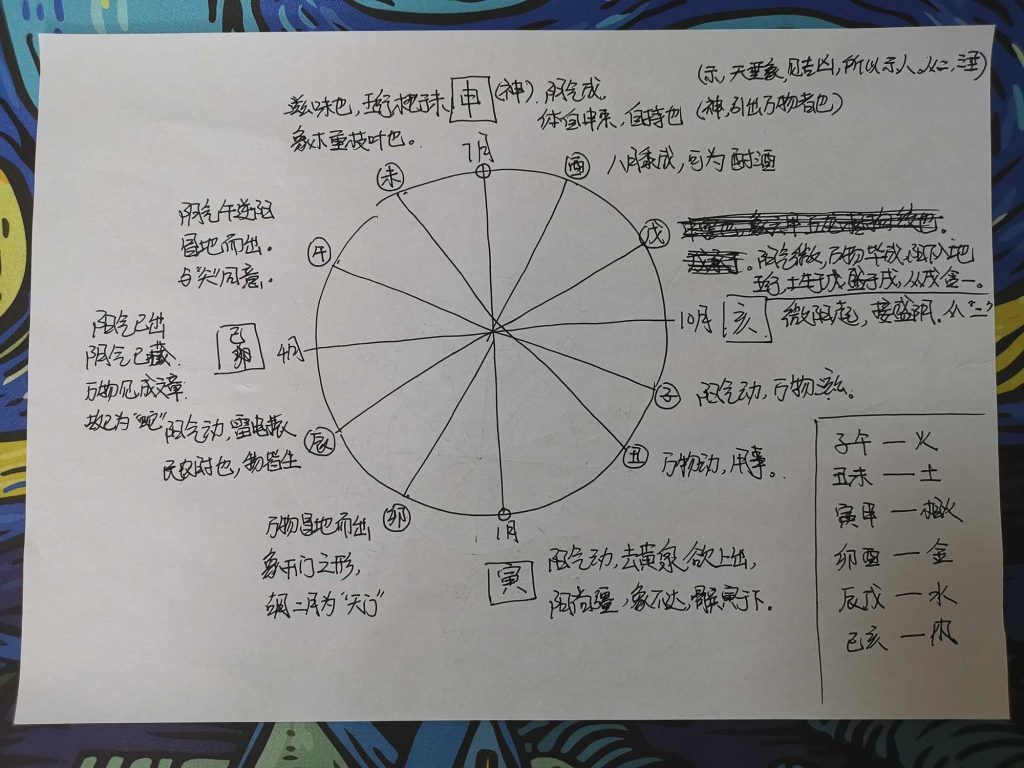 (示,天垂象,见吉凶,所以示人,从二,三垂)
滋味也,五行木老于未,
象木重枝叶也。
申
(神)
阴气成
体自申束,自持也
(神,引出万物者也)
7月
未
酉
八月黍成,可为酎酒
午
阴气午逆阳
冒地而出。
与"矢"同意。
戊
阳气微,万物毕成,阳下入地
五行土生于戊,盛于戌,从戊含一。
10月
亥
微阳起,接盛阴。从"二"
阳气已出
阴气已藏
万物见,成文章
故巳为"蛇"
巳
卯
4月
子
阳气动,万物滋。
辰
阳气动,雷电振
民农时也,物皆生
丑
万物动,用事。
卯
万物冒地而出
象开门之形,
故二月为"天门"
1月
寅
阳气动,去黄泉,欲上出,
阴尚疆,象不达,髌寅于下。
子午一火
丑未一土
寅甲一相火
卯酉一金
辰戊一水
已亥一